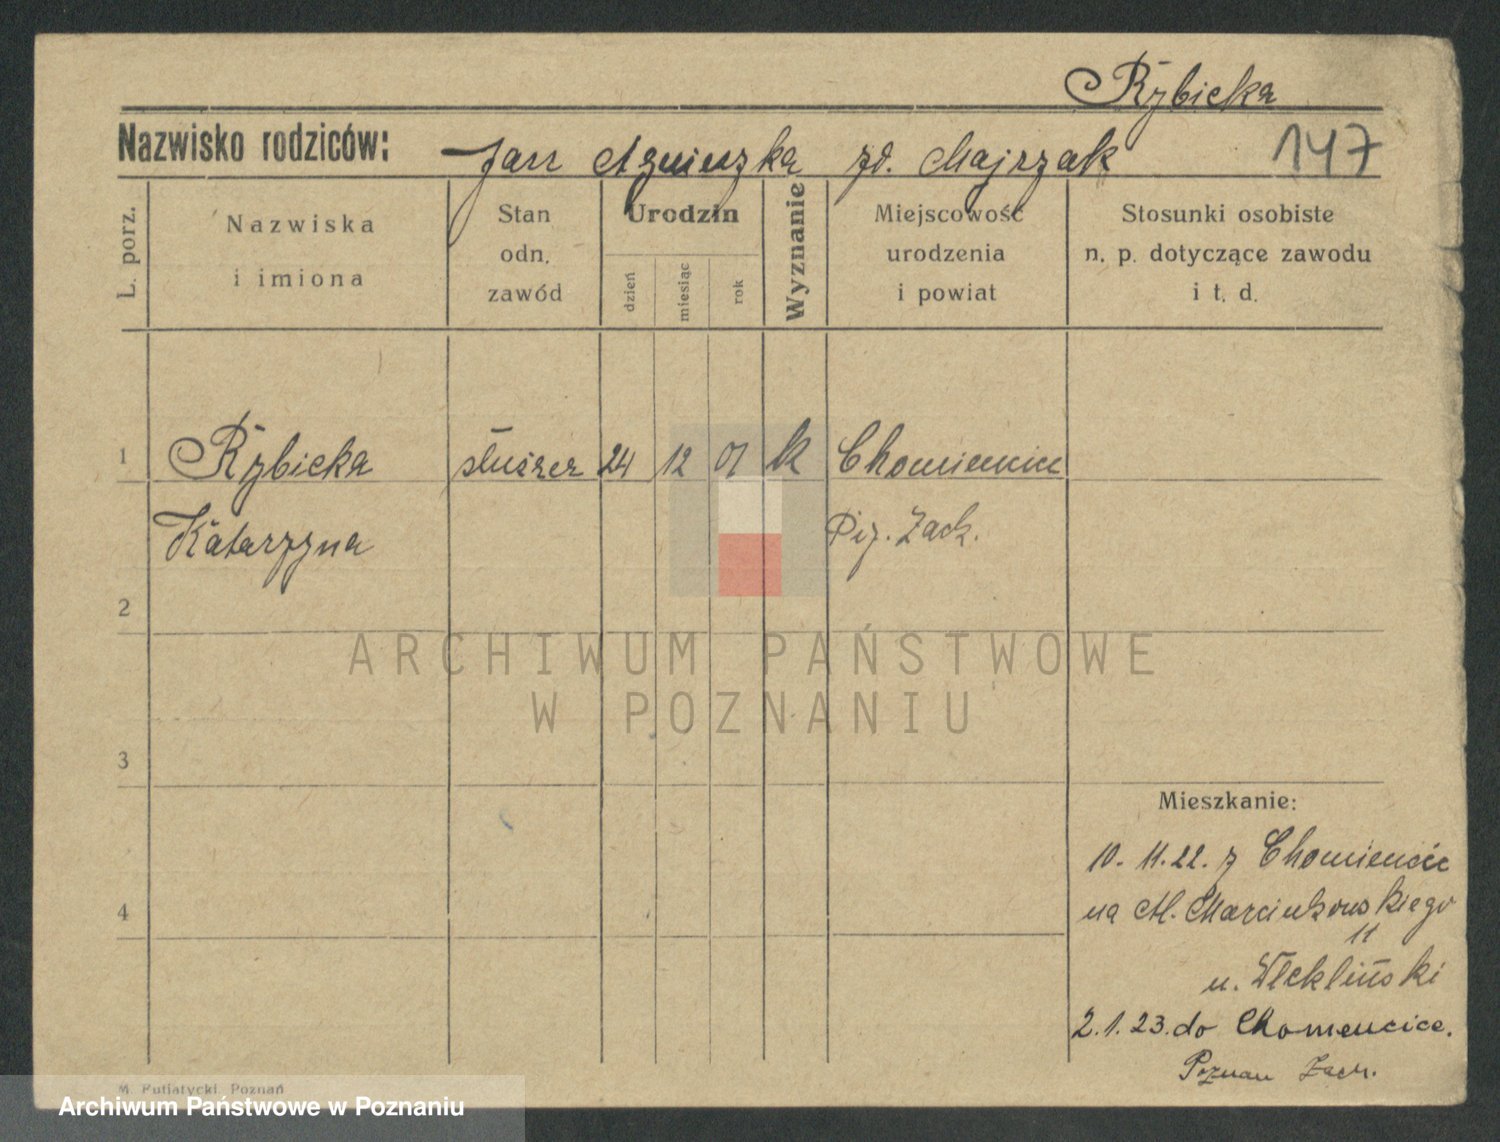 Rybicka
Nazwisko rodziców: Jan Agnieszka zd. Majrzak 147
L. porz.
Nazwiska
i imiona
Stan
odn.
zawód
Urodzin
dzień
miesiąc
rok
Wyznanie
Miejscowość
urodzenia
i powiat
Stosunki osobiste
n. p. dotyczące zawodu
i t. d.
1 Rybicka 24 12 01 k Chomiencice
Katarzyna Zach.
2
ARCHIWUM PAŃSTWOWE
W POZNANIU
3
Mieszkanie:
10. 11. 22. z Chomiencic
4 na M. Marcinkowskiego
11
u.
2. 1. 23. do Chomencice.
Poznan Zach.
M. Putiatycki, Poznań
Archiwum Państwowe w Poznaniu